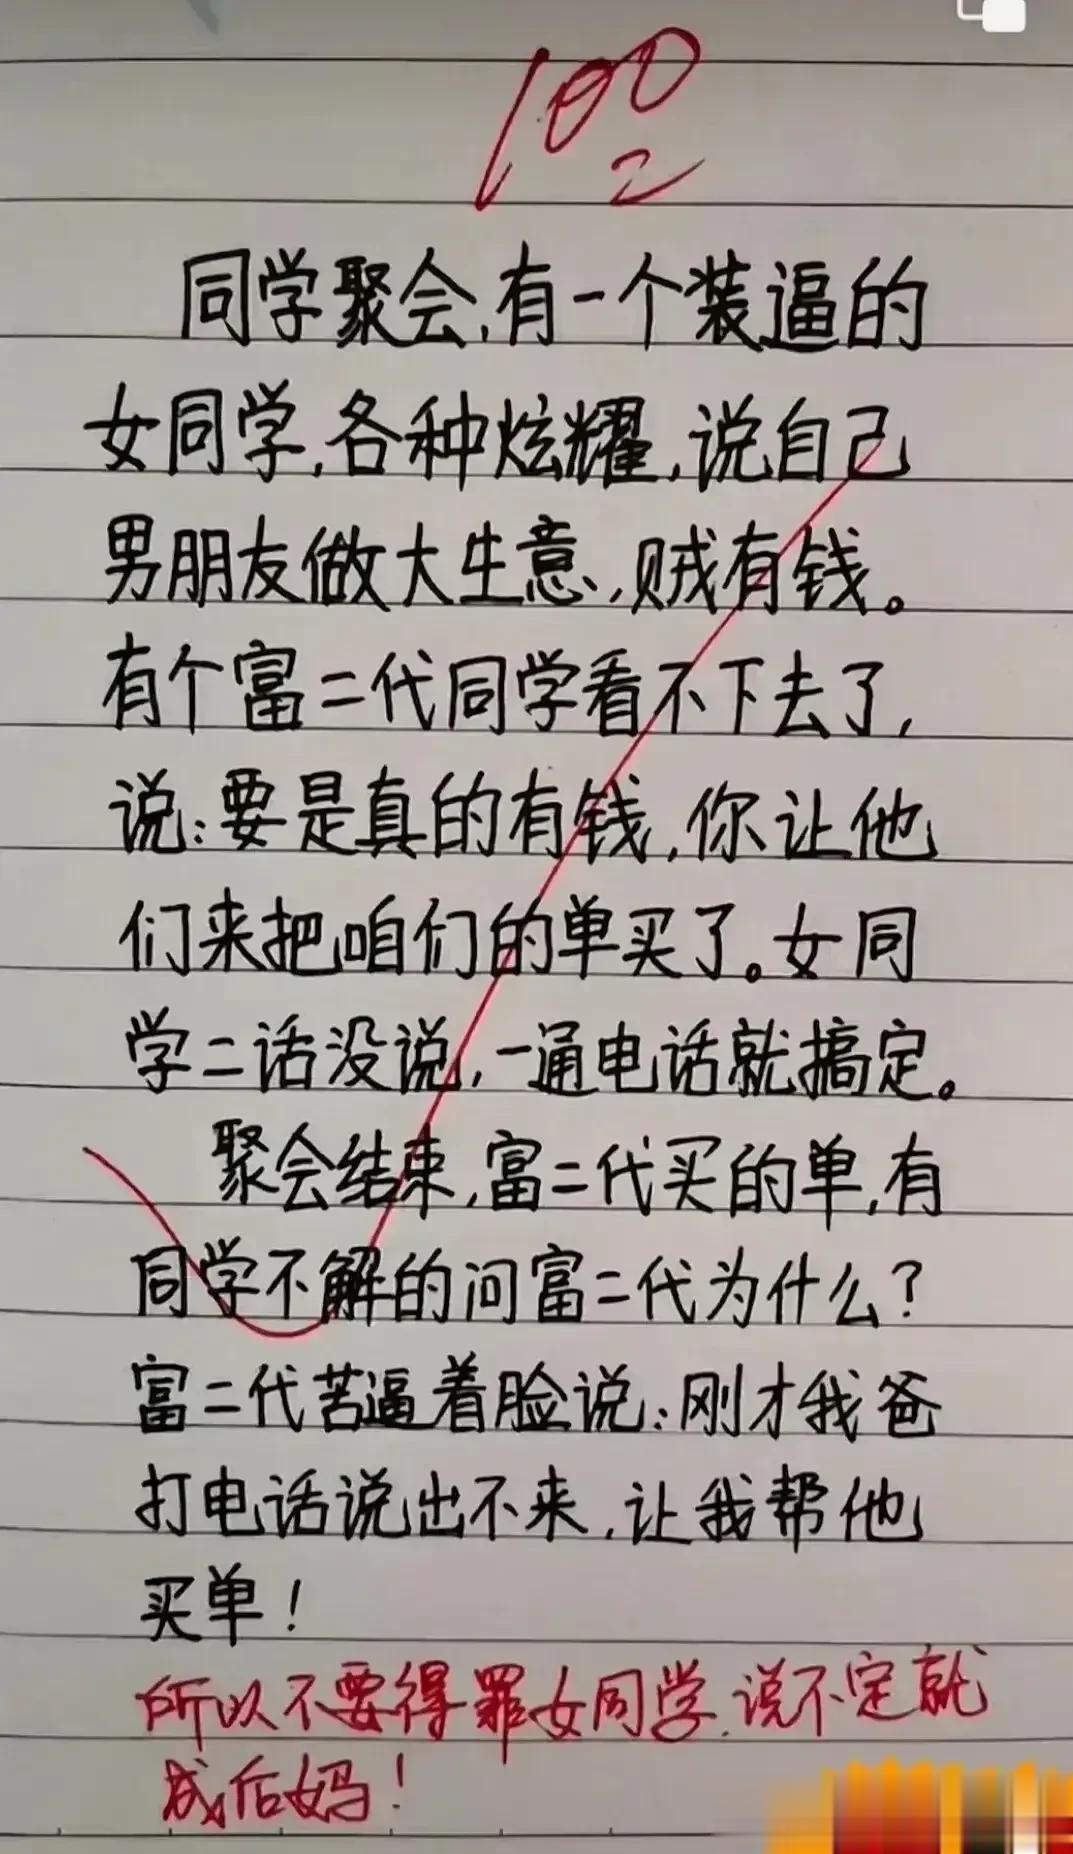 100
同学聚会,有一个装逼的
女同学,各种炫耀,说自己
男朋友做大生意,贼有钱。
有个富二代同学看不下去了,
说:要是真的有钱,你让他
们来把咱们的单买了。女同
学二话没说,一通电话就搞定。
聚会结束,富二代买的单,有
同学不解的问富二代为什么?
富二代苦逼着脸说:刚才我爸
打电话说出不来,让我帮他
买单!
所以不要得罪女同学,说不定就
成后妈!